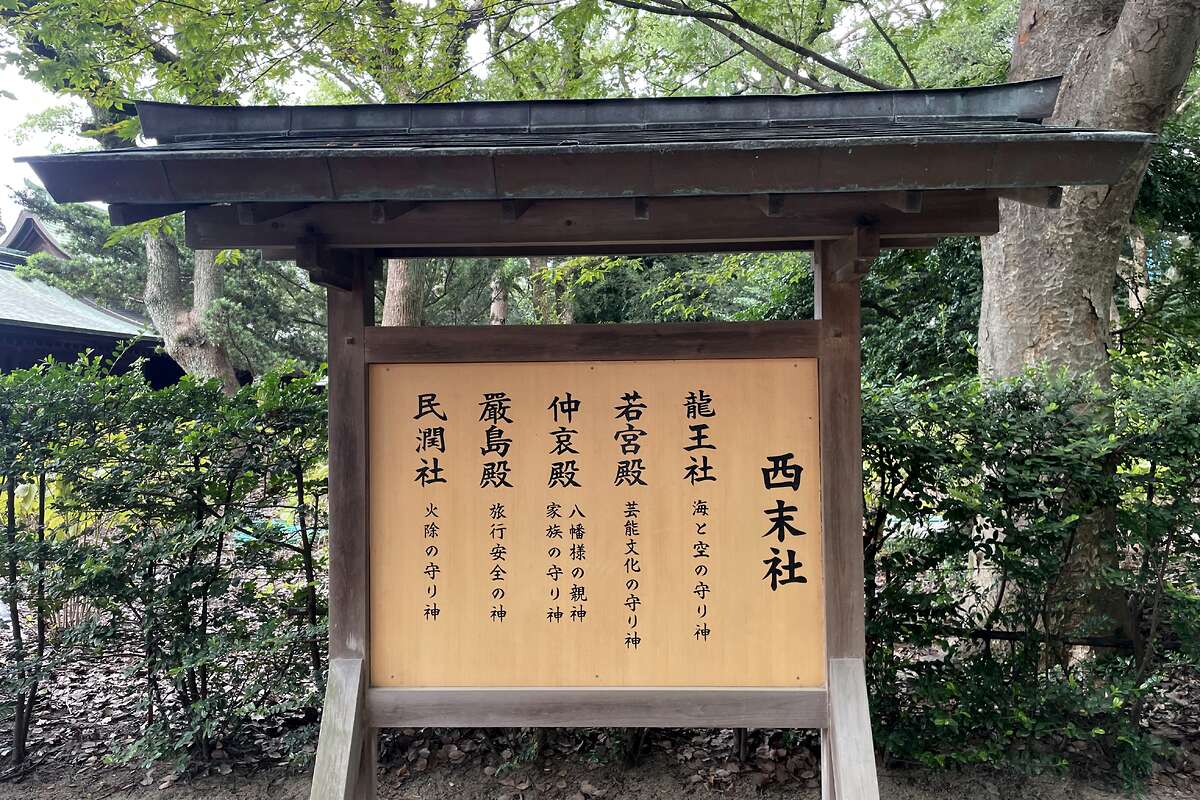 西末社
龍王社
海と空の守り神
若宮殿
芸能文化の守り神
仲哀殿
八幡様の親神
家族の守り神
厳島殿
旅行安全の神
民潤社
火除の守り神